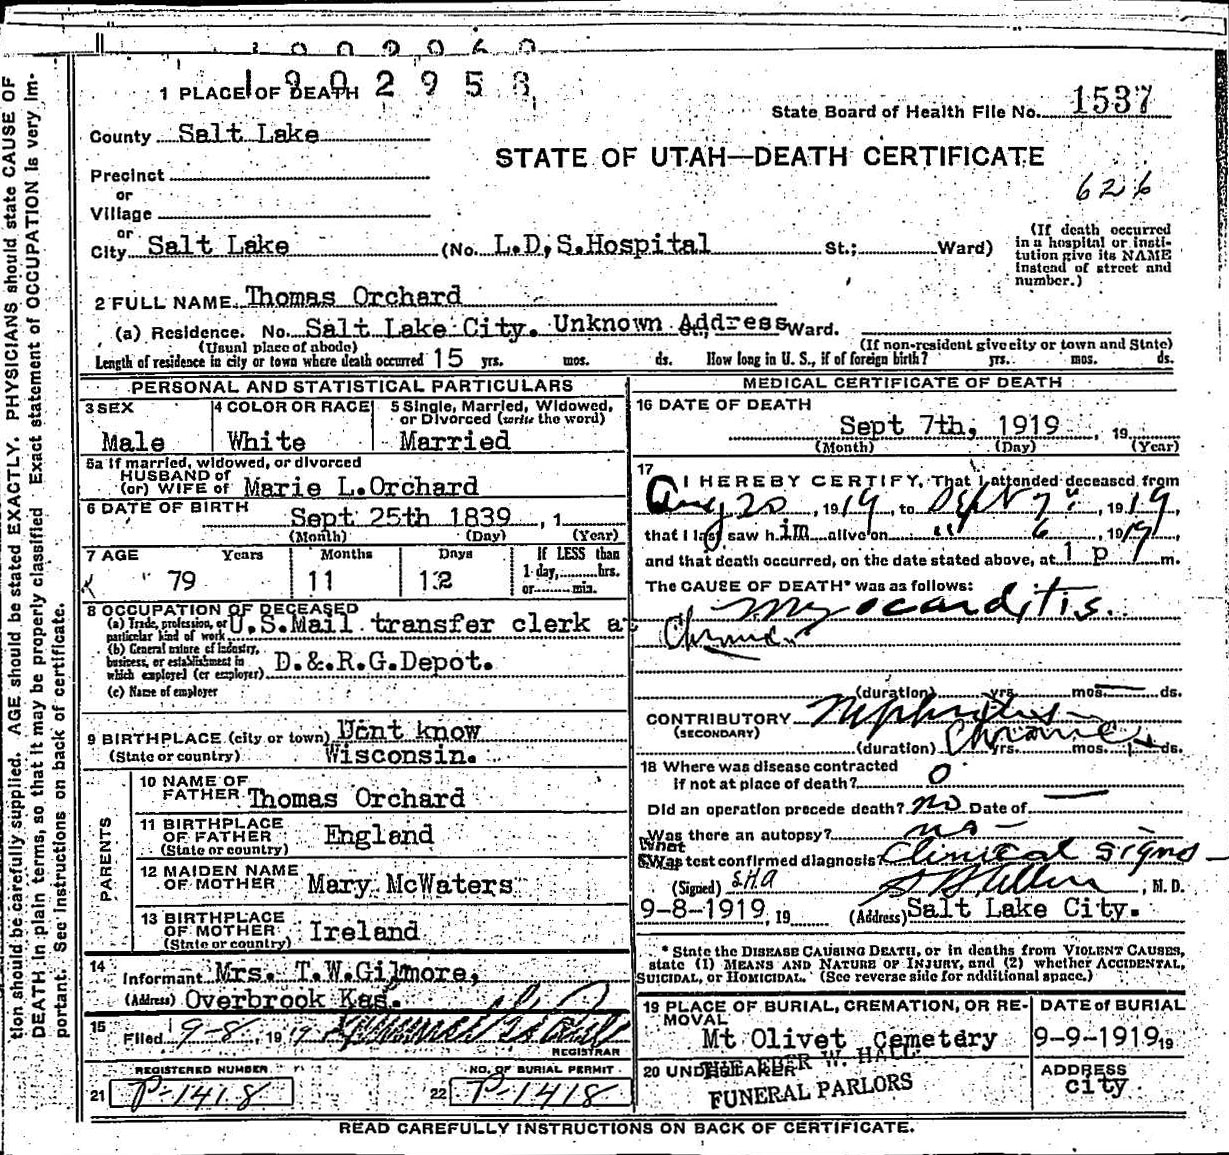 1902958
1 PLACE OF DEATH
State Board of Health File No. 1537
County Salt Lake
STATE OF UTAH—DEATH CERTIFICATE
Precinct
626
or
Village
or
City Salt Lake (No. L.D,S.Hospital St.; Ward)
(If death occurred in a hospital or insti-
tution give its NAME
instead of street and
number.)
2 FULL NAME Thomas Orchard
(a) Residence. No. Salt Lake City. Unknown Address Ward.
(Usual place of abode) (If non-resident give city or town and State)
Length of residence in city or town where death occurred 15 yrs. mos. ds. How long in U. S., if of foreign birth? yrs. mos. ds.
PERSONAL AND STATISTICAL PARTICULARS
3 SEX 4 COLOR OR RACE 5 Single, Married, Widowed,
or Divorced (write the word)
Male White Married
5a If married, widowed, or divorced
HUSBAND of
(or) WIFE of Marie L.Orchard
6 DATE OF BIRTH Sept 25th 1839 , 1
(Month) (Day) (Year)
7 AGE Years Months Days If LESS than
1 day, hrs.
79 11 12 or min.
8 OCCUPATION OF DECEASED
(a) Trade, profession, or
particular kind of work U.S.Mail transfer clerk at
(b) General nature of industry,
business, or establishment in
which employed (or employer) D.&.R.G.Depot.
(c) Name of employer
9 BIRTHPLACE (city or town) Dont know
(State or country) Wisconsin.
PARENTS
10 NAME OF
FATHER Thomas Orchard
11 BIRTHPLACE
OF FATHER England
(State or country)
12 MAIDEN NAME
OF MOTHER Mary McWaters
13 BIRTHPLACE
OF MOTHER Ireland
(State or country)
14 Informant Mrs. T.W.Gilmore,
(Address) Overbrook Kas.
15 Filed 9-8, 1919
REGISTRAR
REGISTERED NUMBER NO. OF BURIAL PERMIT
21 P-1418 22 P-1418
MEDICAL CERTIFICATE OF DEATH
16 DATE OF DEATH
Sept 7th, 1919 , 19
(Month) (Day) (Year)
17 I HEREBY CERTIFY, That I attended deceased from
Aug 20, 1919, to Sept 7", 1919,
that I last saw him alive on " 6, 1919,
and that death occurred, on the date stated above, at 1 p m.
The CAUSE OF DEATH* was as follows:
Myocarditis.
Chronic
(duration) yrs. mos. ds.
CONTRIBUTORY Nephritis
(SECONDARY) Chronic
(duration) yrs. mos. ds.
18 Where was disease contracted
if not at place of death? 0
Did an operation precede death? no Date of
Was there an autopsy? no
What
Was test confirmed diagnosis? Clinical signs
(Signed) , M. D.
9-8-1919, 19 (Address) Salt Lake City.
* State the DISEASE CAUSING DEATH, or in deaths from VIOLENT CAUSES,
state (1) MEANS AND NATURE OF INJURY, and (2) whether ACCIDENTAL,
SUICIDAL, or HOMICIDAL. (See reverse side for additional space.)
19 PLACE OF BURIAL, CREMATION, OR RE-
MOVAL DATE of BURIAL
Mt Olivet Cemetary 9-9-1919 19
20 UNDERTAKER THE EBER W. HALL
FUNERAL PARLORS
ADDRESS
city
READ CAREFULLY INSTRUCTIONS ON BACK OF CERTIFICATE.
tion should be carefully supplied. AGE should be stated EXACTLY. PHYSICIANS should state CAUSE OF
DEATH in plain terms, so that it may be properly classified. Exact statement of OCCUPATION is very im-
portant. See instructions on back of certificate.